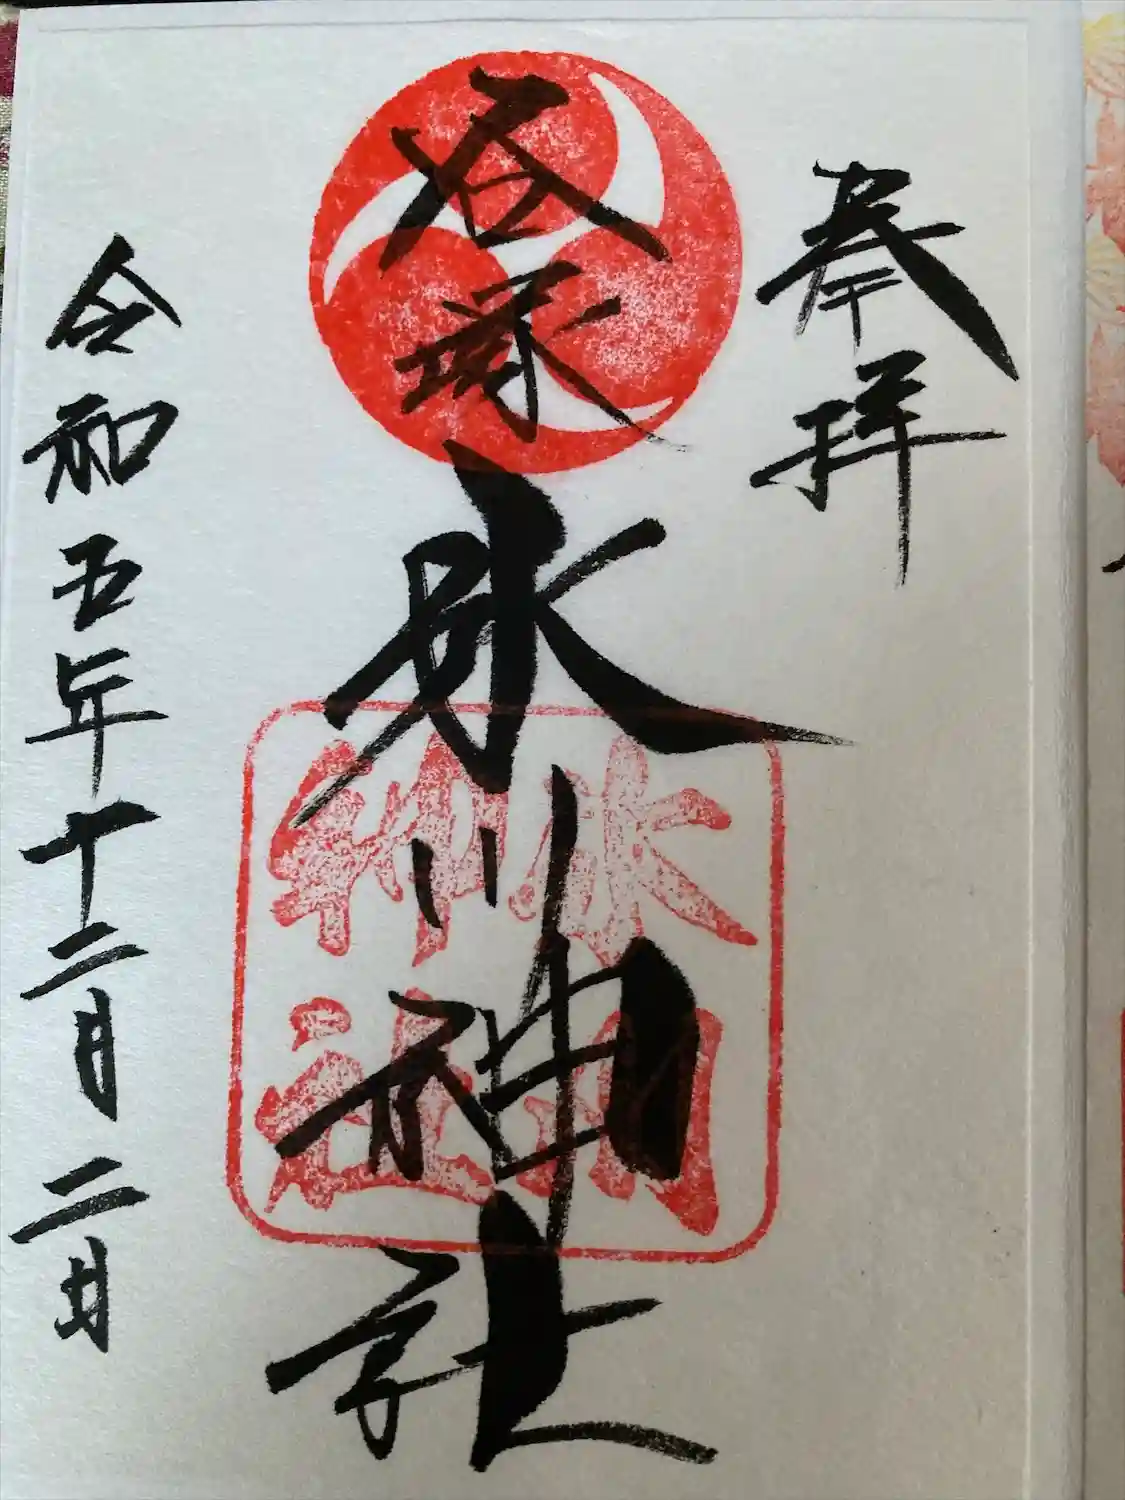 奉拝
谷塚氷川神社
氷川
神社
令和五年十二月二日